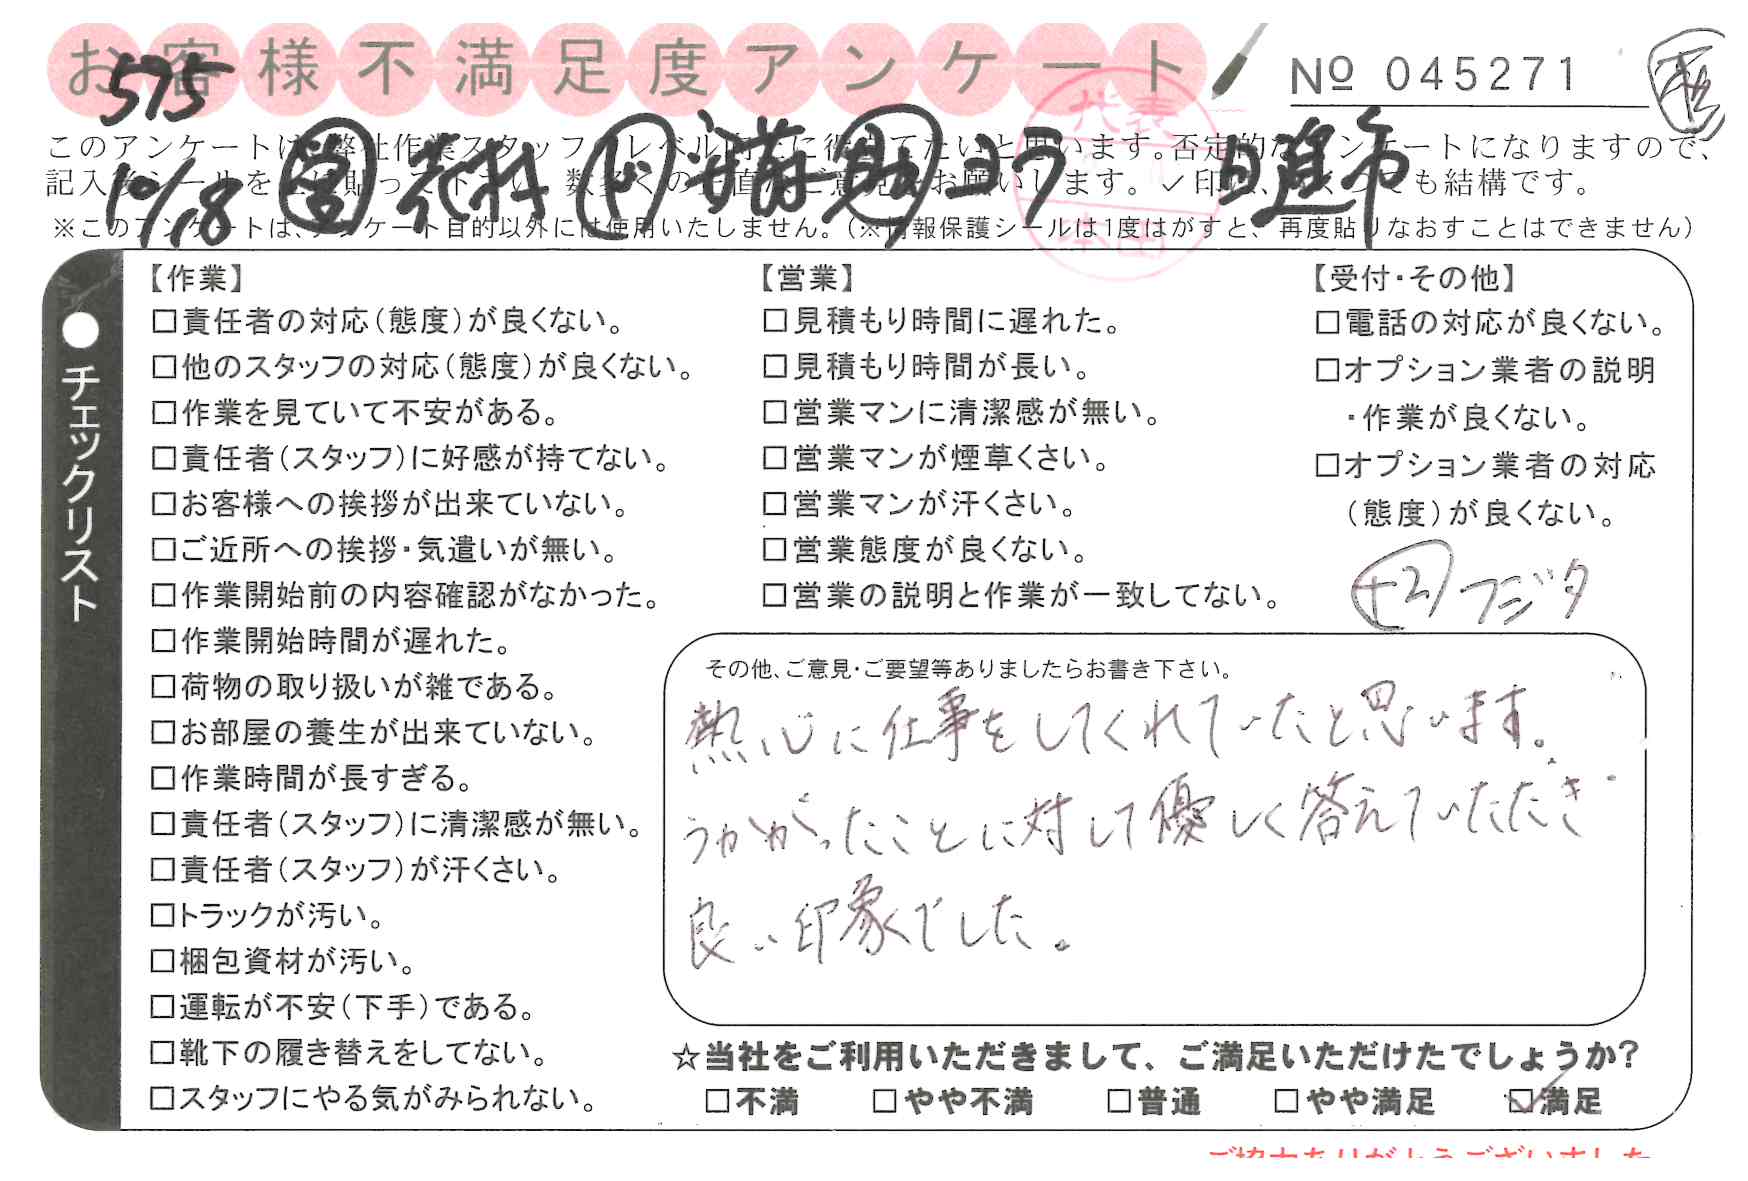 お客様不満足度アンケート
№ 045271
575
このアンケートは、弊社作業スタッフのレベル向上に役立てたいと思います。否定的なアンケートになりますので、
記入後シールをお貼って下さい。数多くの正直なご意見をお願いします。✓印は、いくつでも結構です。
10/18
ヨウ
日進市
代表
※このアンケートは、アンケート目的以外には使用いたしません。(※情報保護シールは1度はがすと、再度貼りなおすことはできません)
●チェックリスト
【作業】
□責任者の対応(態度)が良くない。
□他のスタッフの対応(態度)が良くない。
□作業を見ていて不安がある。
□責任者(スタッフ)に好感が持てない。
□お客様への挨拶が出来ていない。
□ご近所への挨拶・気遣いが無い。
□作業開始前の内容確認がなかった。
□作業開始時間が遅れた。
□荷物の取り扱いが雑である。
□お部屋の養生が出来ていない。
□作業時間が長すぎる。
□責任者(スタッフ)に清潔感が無い。
□責任者(スタッフ)が汗くさい。
□トラックが汚い。
□梱包資材が汚い。
□運転が不安(下手)である。
□靴下の履き替えをしてない。
□スタッフにやる気がみられない。
【営業】
□見積もり時間に遅れた。
□見積もり時間が長い。
□営業マンに清潔感が無い。
□営業マンが煙草くさい。
□営業マンが汗くさい。
□営業態度が良くない。
□営業の説明と作業が一致してない。
【受付・その他】
□電話の対応が良くない。
□オプション業者の説明
・作業が良くない。
□オプション業者の対応
(態度)が良くない。
+2 フジタ
その他、ご意見・ご要望等ありましたらお書き下さい。
熱心に仕事をしてくれていたと思います。
うかがったことに対して優しく答えていただき
良い印象でした。
☆当社をご利用いただきまして、ご満足いただけたでしょうか?
□不満 □やや不満 □普通 □やや満足 ☑満足
ご協力ありがとうございました